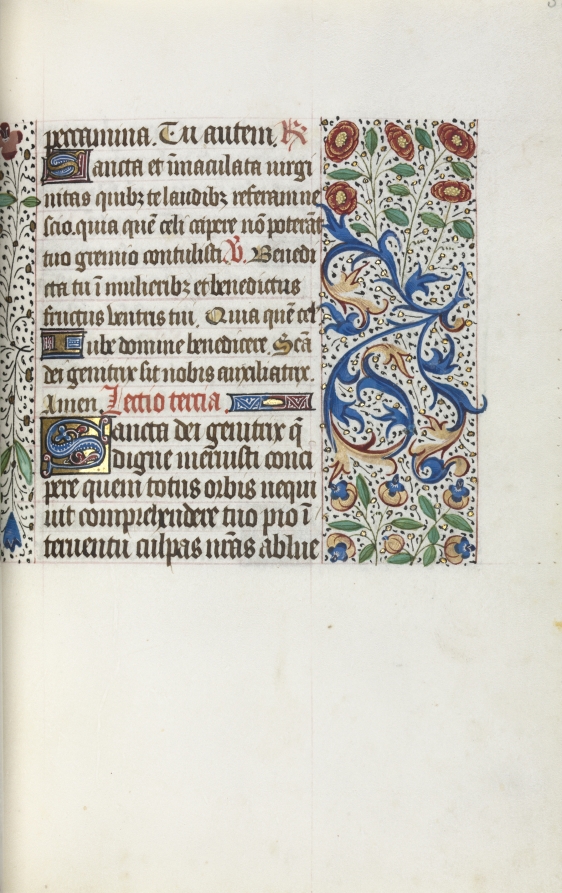 peccamina. Tu autem. R
Sancta et īmaculata uirgi
nitas quibꝫ te laudibꝫ referam ne
scio. quia quē celi capere nō poterāt
tuo gremio contulisti. V. Benedi
cta tu ī mulieribꝫ et benedictus
fructus uentris tui. Quia quē cel
Iube domne benedicere. Scā
dei genitrix sit nobis auxiliatrix.
Amen. Lectio tercia
Sancta dei genitrix q̄
digne meruisti conci
pere quem totus orbis nequi
uit comprehendere tuo pio ī
teruentu culpas nr̄as ablue